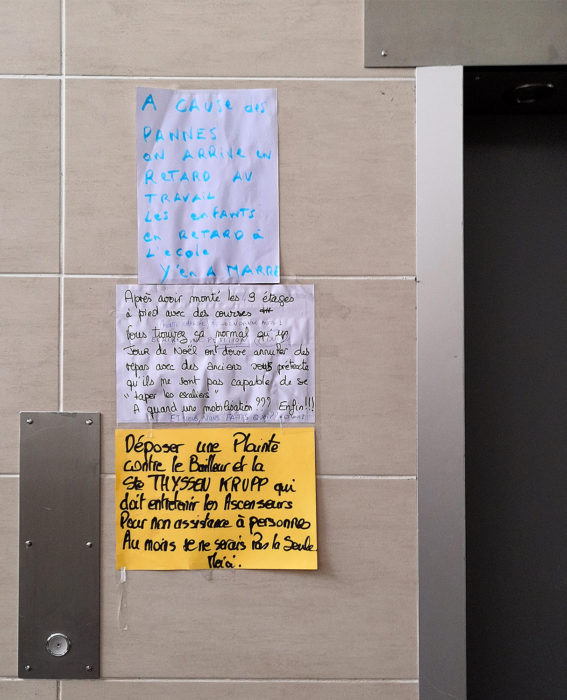 A CAUSE des
PANNES
ON ARRIVE EN
RETARD AU
TRAVAIL
LES ENFANTS
EN RETARD à
L'ecole
Y'EN A MARRE
Après avoir monté les 9 étages
à pied avec des courses
Vous trouvez ça normal qu'un
Jour de Noël ont doive annuller des
repas avec des anciens sous prétexte
qu'ils ne sont pas capable de se
"taper les escaliers"
A quand une mobilisation ??? Enfin!!!
Déposer une Plainte
contre le Bailleur et la
Sté THYSSEN KRUPP qui
doit entretenir les Ascenseurs
Pour non assistance à personnes
Au moins je ne serais Pas la Seule
Merci.